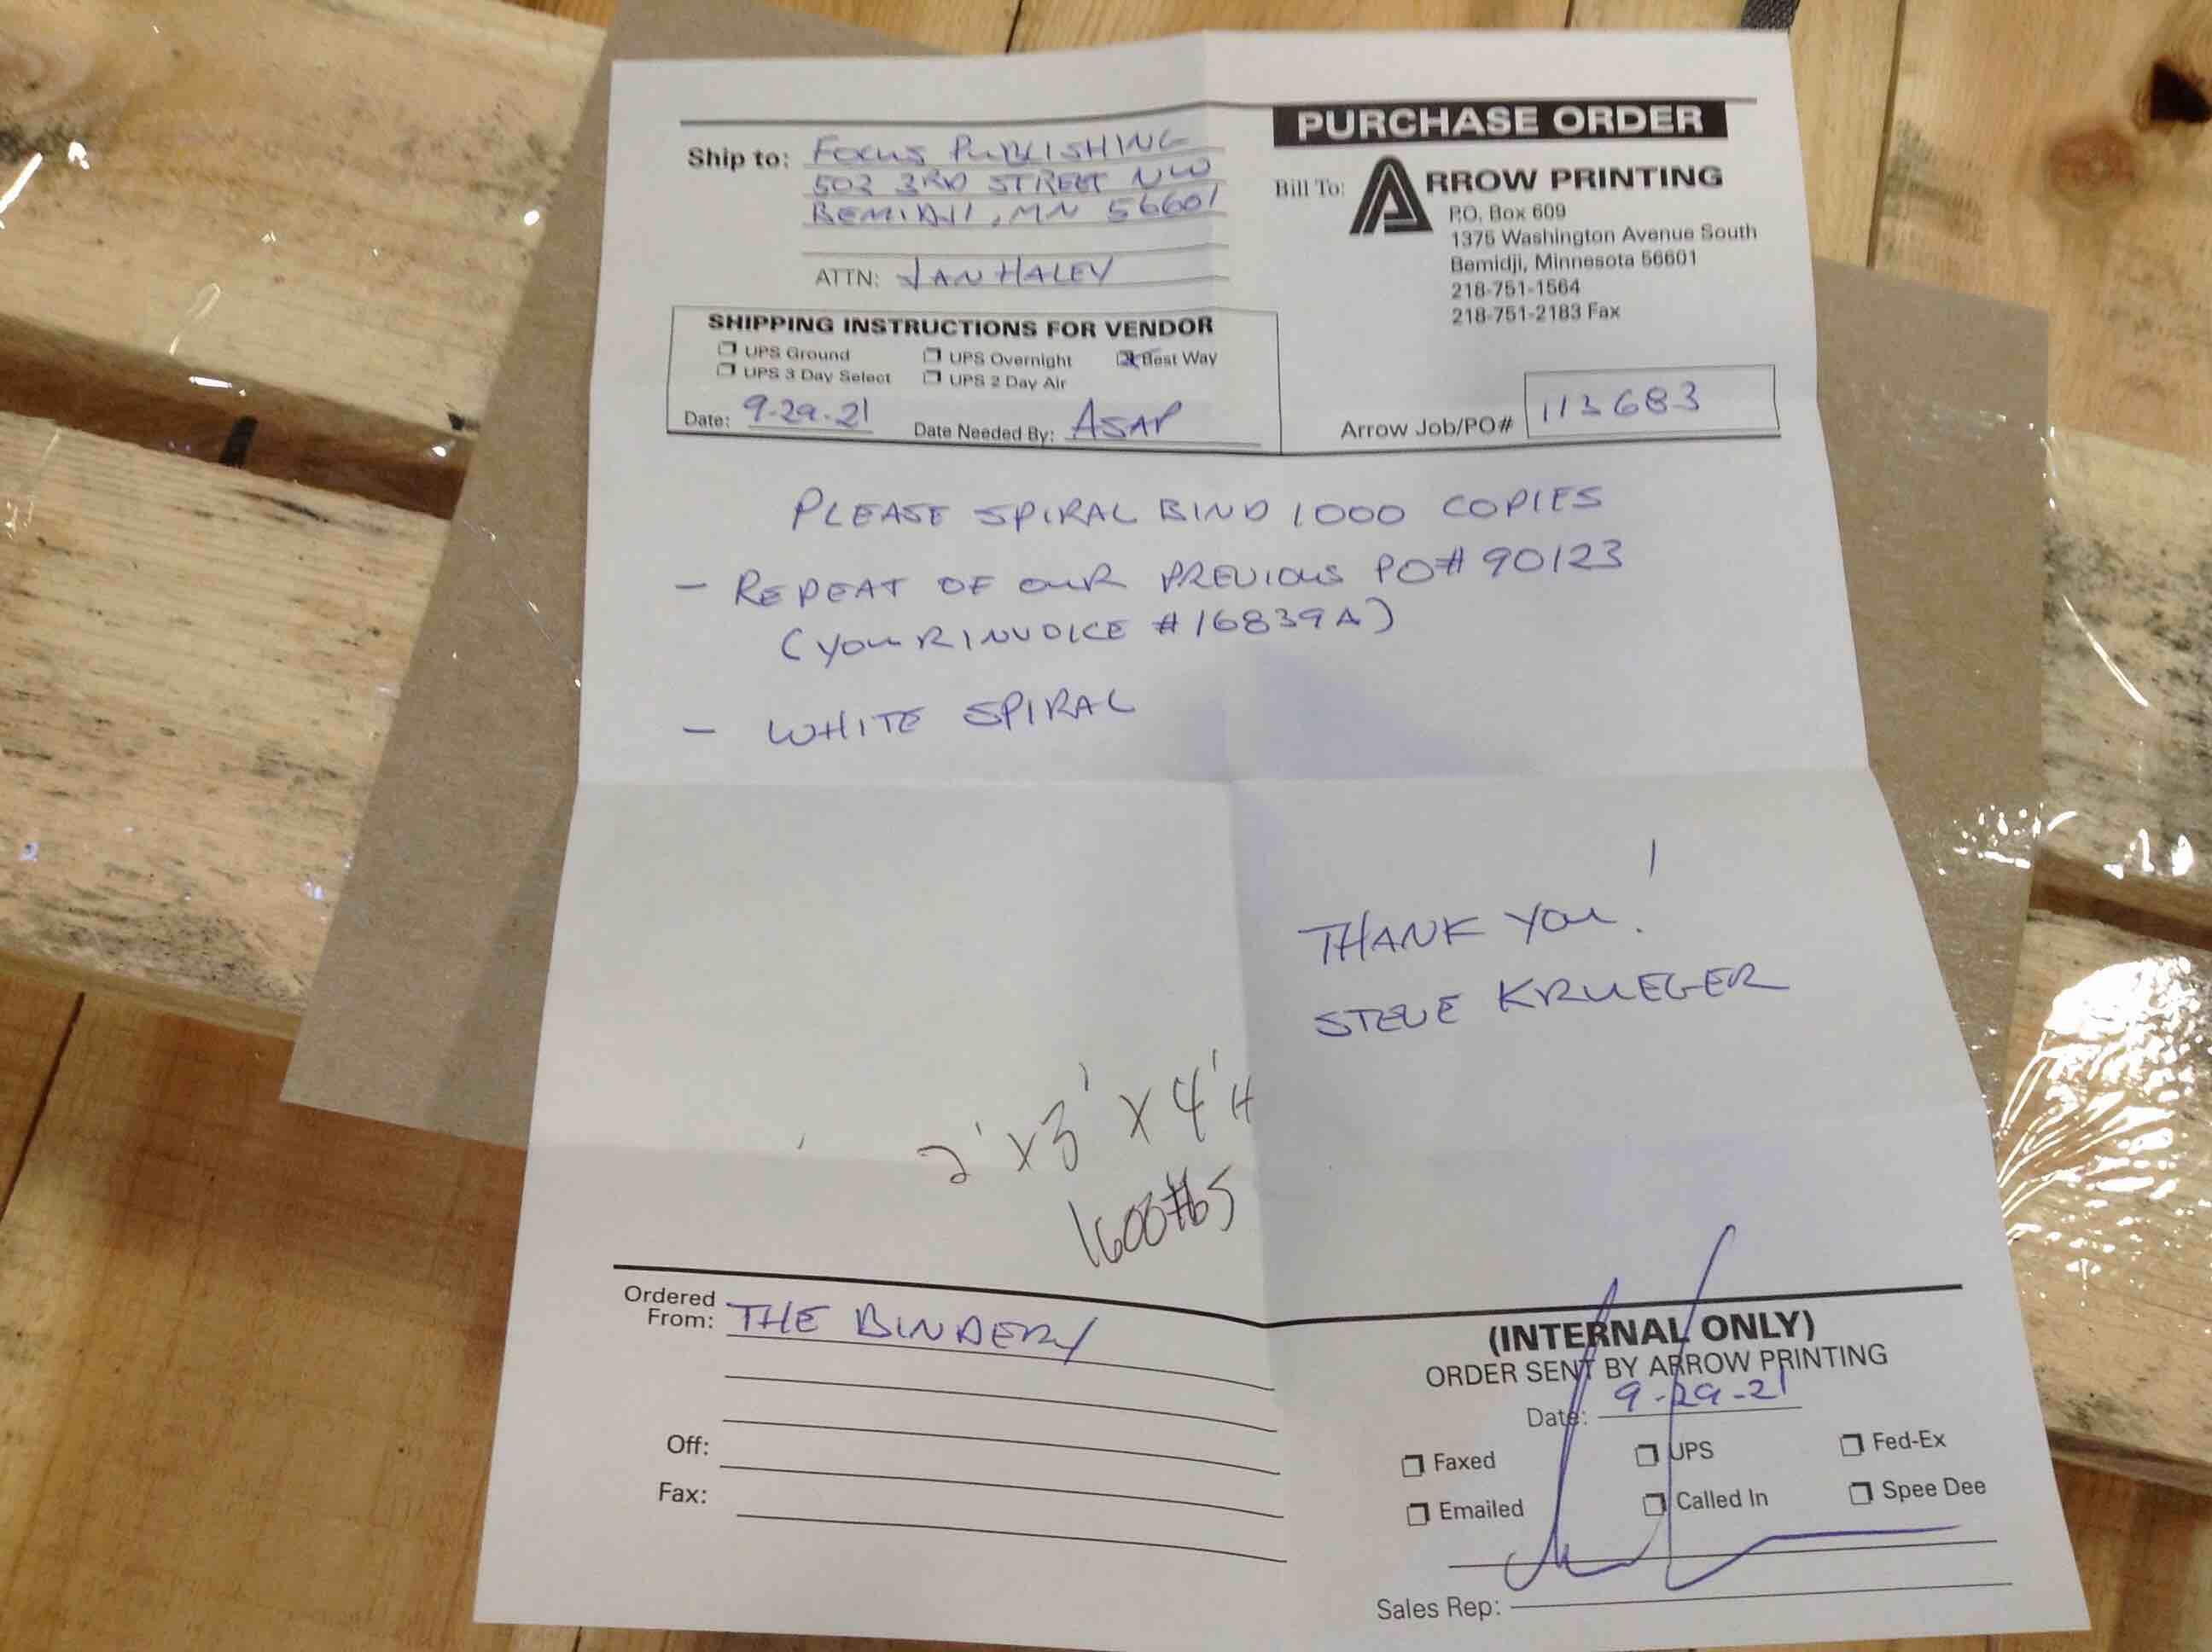 PURCHASE ORDER
Ship to: FOCUS PUBLISHING
502 3RD STREET NW
BEMIDJI, MN 56601
ATTN: JAN HALEY
Bill To: ARROW PRINTING
P.O. Box 609
1375 Washington Avenue South
Bemidji, Minnesota 56601
218-751-1564
218-751-2183 Fax
SHIPPING INSTRUCTIONS FOR VENDOR
UPS Ground UPS Overnight Best Way
UPS 3 Day Select UPS 2 Day Air
Date: 9-29-21 Date Needed By: ASAP
Arrow Job/PO# 113683
PLEASE SPIRAL BIND 1000 COPIES
- REPEAT OF OUR PREVIOUS PO# 90123
(YOUR INVOICE #16839A)
- WHITE SPIRAL
THANK YOU!
STEVE KRUEGER
2' x 3' x 4' H
1600
Ordered
From: THE BINDERY
Off:
Fax:
(INTERNAL ONLY)
ORDER SENT BY ARROW PRINTING
Date: 9-29-21
Faxed UPS Fed-Ex
Emailed Called In Spee Dee
Sales Rep: